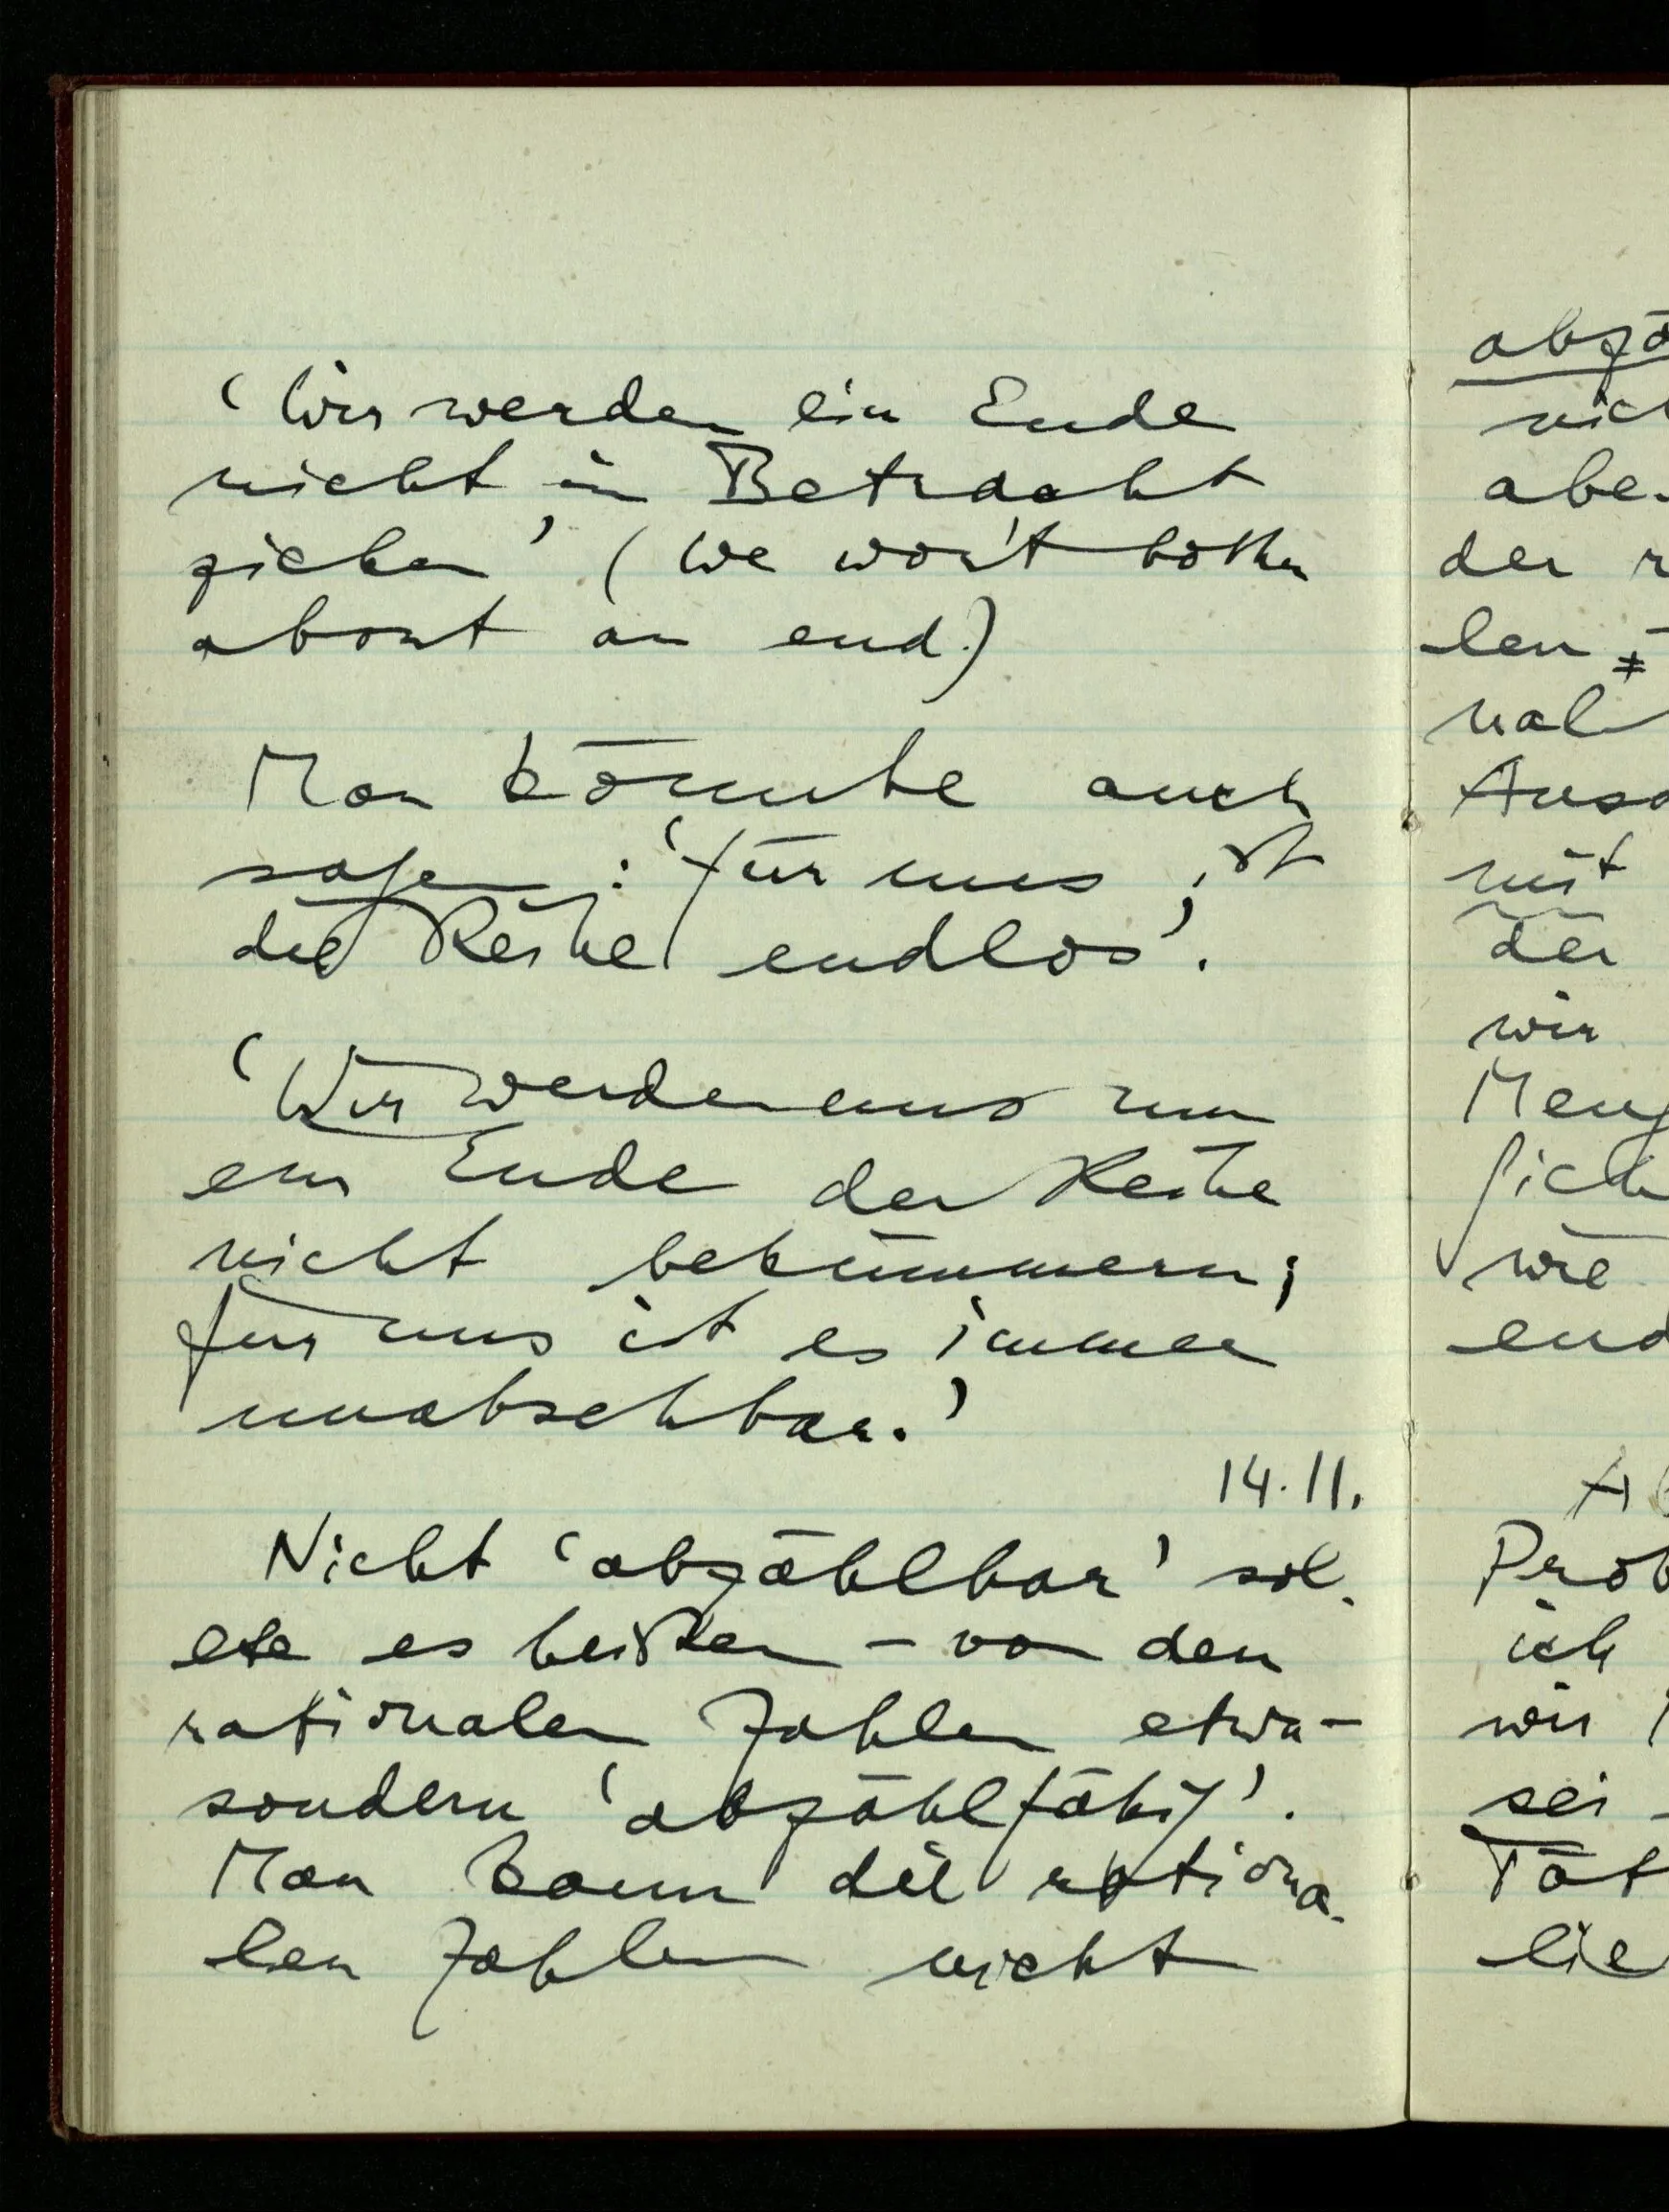 ‘Wir werden ein Ende
nicht in Betracht
ziehen’ (We won't bother
about an end.)
Man könnte auch
sagen: ‘für uns ist
die Reihe endlos’.
‘Wir werden uns um
ein Ende der Reihe
nicht bekümmern;
für uns ist es immer
unabsehbar.’
14.11.
Nicht ‘abzählbar’ sol-
lte es heißen – von den
rationalen Zahlen etwa –
sondern ‘abzählfähig’.
Man kann die rationa-
len Zahlen nicht
abzä
nich
abe
der r
len
nal
mit
der
wir
Meng
wie
end
Prob
ich
wir
sei
Tät
lie